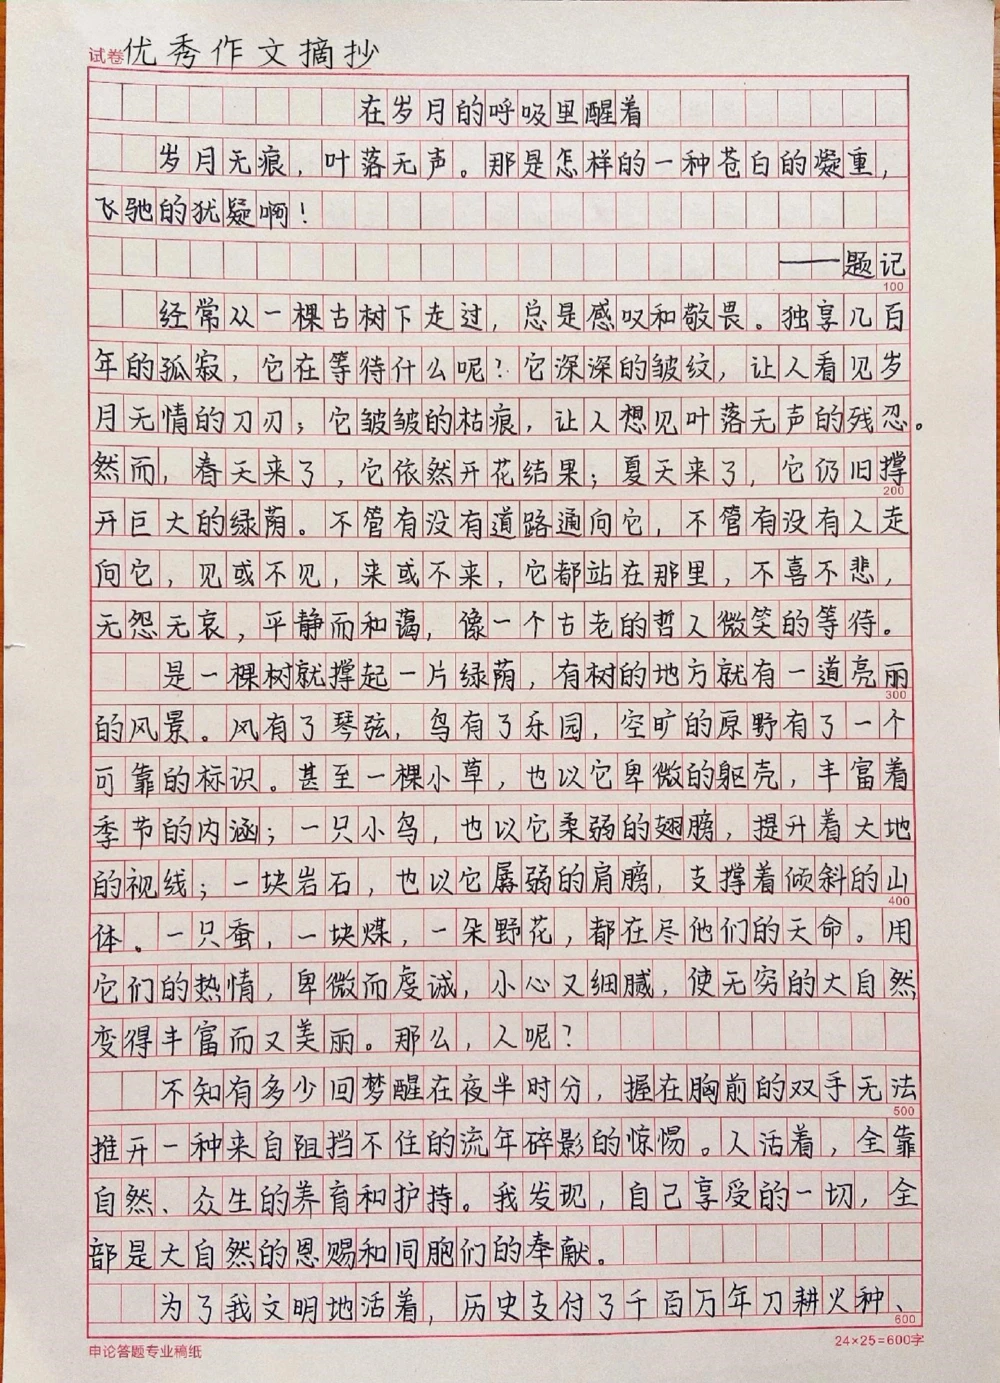 试卷优秀作文摘抄
在岁月的呼吸里醒着
岁月无痕，叶落无声。那是怎样的一种苍白的凝重，
飞驰的犹疑啊！
——题记
100
经常从一棵古树下走过，总是感叹和敬畏。独享几百
年的孤寂，它在等待什么呢？它深深的皱纹，让人看见岁
月无情的刀刃；它皱皱的枯痕，让人想见叶落无声的残忍。
然而，春天来了，它依然开花结果；夏天来了，它仍旧撑
200
开巨大的绿荫。不管有没有道路通向它，不管有没有人走
向它，见或不见，来或不来，它都站在那里，不喜不悲，
无怨无哀，平静而和蔼，像一个古老的哲人微笑的等待。
是一棵树就撑起一片绿荫，有树的地方就有一道亮丽
300
的风景。风有了琴弦，鸟有了乐园，空旷的原野有了一个
可靠的标识。甚至一棵小草，也以它卑微的躯壳，丰富着
季节的内涵；一只小鸟，也以它柔弱的翅膀，提升着大地
的视线；一块岩石，也以它孱弱的肩膀，支撑着倾斜的山
400
体。一只蚕，一块煤，一朵野花，都在尽他们的天命。用
它们的热情，卑微而虔诚，小心又细腻，使无穷的大自然
变得丰富而又美丽。那么，人呢？
不知有多少回梦醒在夜半时分，握在胸前的双手无法
500
推开一种来自阻挡不住的流年碎影的惊惕。人活着，全靠
自然、众生的养育和护持。我发现，自己享受的一切，全
部是大自然的恩赐和同胞们的奉献。
为了我文明地活着，历史支付了千百万年刀耕火种、
600
申论答题专业稿纸
24×25=600字